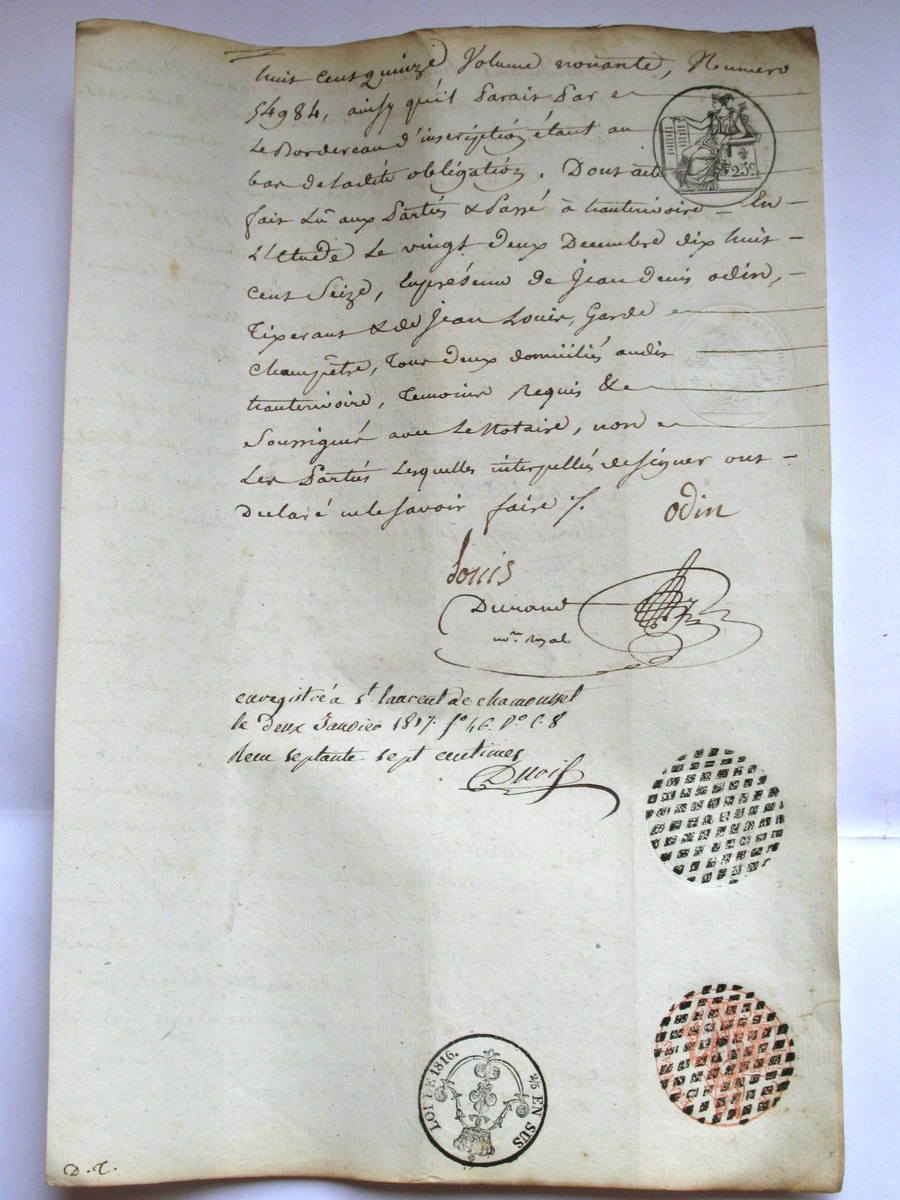 huit cent quinze Volume nonante, Numero
54984, ainsy qu'il Parait Par
Le Bordereau d'inscription étant au
bas de Ladite obligation. Dont acte
25c
fait Lû aux Parties & Passé à hauterivoire - En -
L'Etude Le vingt deux Decembre dix huit -
cent Seize, En présence de Jean denis odin, -
Tixerant & de Jean Louis, Garde
champêtre, Tous deux domiciliés audit
hauterivoire, Temoins Requis &
Soussignés avec Le Notaire, non
Les Parties Lesquelles interpellées de signer ont -
Declaré ne le savoir faire /.
odin
Louis
Durand
nore. royal
enregistré à St. laurent de chamousset
le deux Janvier 1817. fo 46. Vo C. 8
Reçu septante sept centimes
LOI DE 1816.
2/5 EN SUS
D. T.